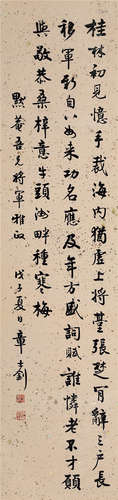 桂林初見憶手裁海內猶虛上將臺張楚有辭三戶長
軍新自八公來功名應及年方盛詞賦誰憐老不才願
與敬恭桑梓意牛頭洲畔種寒梅
默菴吾兄將軍雅政 戊子夏日章士釗